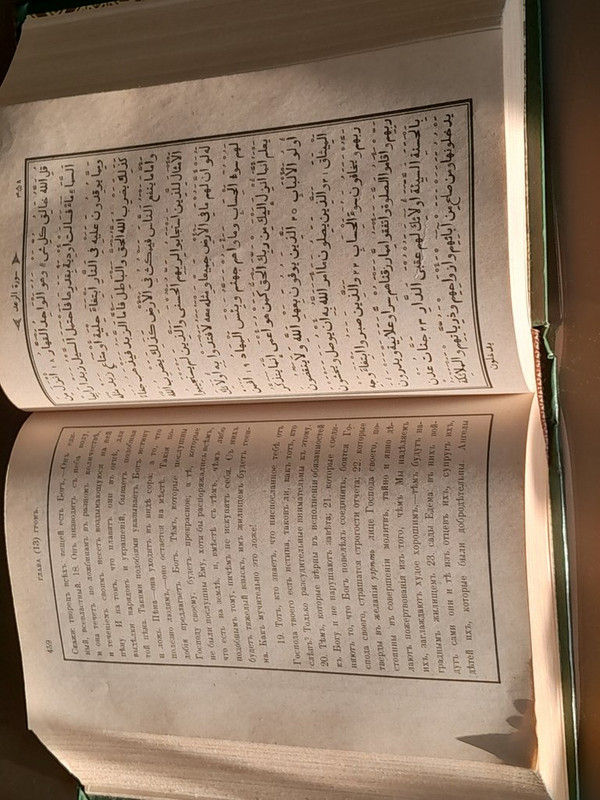 459 ГЛАВА (13) ГРОМЪ.
Скажи: творецъ всѣхъ вещей есть Богъ,—Онъ еди-
ный, всевластный. 18. Онъ низводитъ съ неба воду,
и она течетъ по ложбинамъ въ разномъ количествѣ,
и теченіемъ своимъ несетъ воздымающуюся на ней
пѣну. И на томъ, что плавятъ они въ огнѣ, для
выдѣлки нарядовъ и украшеній, бываетъ подобная
той пѣна. Такими подобіями указываетъ Богъ истину
и ложь. Пѣна—она уходитъ въ видѣ сора; а то, что
полезно людямъ,—оно остается на мѣстѣ. Такія по-
добія предлагаетъ Богъ. Тѣмъ, которые послушны
Господу своему, будетъ—прекрасное; а тѣ, которые
не были послушны Ему, хотя бы распоряжались всѣмъ,
что есть на землѣ, и, вмѣстѣ съ тѣмъ, чѣмъ либо
подобнымъ тому, ничѣмъ не искупятъ себя. Съ нихъ
будетъ тяжелый взыскъ, ихъ жилищемъ будетъ геен-
на. Какъ мучительно это ложе!
19. Тотъ, кто знаетъ, что ниспосланное тебѣ отъ
Господа твоего есть истина, таковъ ли, какъ тотъ, кто
слѣпъ? Только разсудительные внимательны къ этому.
20. Тѣмъ, которые вѣрны въ исполненіи обязанностей
къ Богу и не нарушаютъ завѣта; 21. которые соеди-
няютъ то, что Богъ повелѣлъ соединять; боятся Го-
спода своего, страшатся строгости отчота; 22. которые
тверды въ желаніи узрѣть лице Господа своего, по-
стоянны въ совершеніи молитвъ, тайно и явно дѣ-
лаютъ пожертвованія изъ того, чѣмъ Мы надѣляемъ
ихъ, заглаждаютъ худое хорошимъ,—тѣмъ будутъ на-
граднымъ жилищемъ 23. сады Едема: въ нихъ вой-
дутъ сами они и тѣ изъ отцевъ ихъ, супругъ ихъ,
дѣтей ихъ, которые были добродѣтельны. Ангелы
٣٥٨ سورة الرعد
قل الله خالق كل شيء وهو الواحد القهار ١٨ انزل من
السماء ماء فسالت اودية بقدرها فاحتمل السيل زبدا رابيا
ومما يوقدون عليه في النار ابتغاء حلية او متاع زبد مثله
كذلك يضرب الله الحق والباطل فاما الزبد فيذهب جفاء
واما ما ينفع الناس فيمكث في الارض كذلك يضرب الله
الامثال للذين استجابوا لربهم الحسنى والذين لم يستجيبوا
له لو ان لهم ما في الارض جميعا ومثله معه لافتدوا به اولائك
لهم سوء الحساب وماواهم جهنم وبئس المهاد ١٩ افمن
يعلم انما انزل اليك من ربك الحق كمن هو اعمى انما يتذكر
اولو الالباب ٢٠ الذين يوفون بعهد الله ولا ينقضون
الميثاق ٢١ والذين يصلون ما امر الله به ان يوصل ويخشون
ربهم ويخافون سوء الحساب ٢٢ والذين صبروا ابتغاء وجه
ربهم واقاموا الصلوة وانفقوا مما رزقناهم سرا وعلانية ويدرؤن
بالحسنة السيئة اولائك لهم عقبى الدار ٢٣ جنات عدن
يدخلونها ومن صلح من آبائهم وازواجهم وذرياتهم والملائكة
يدخلون